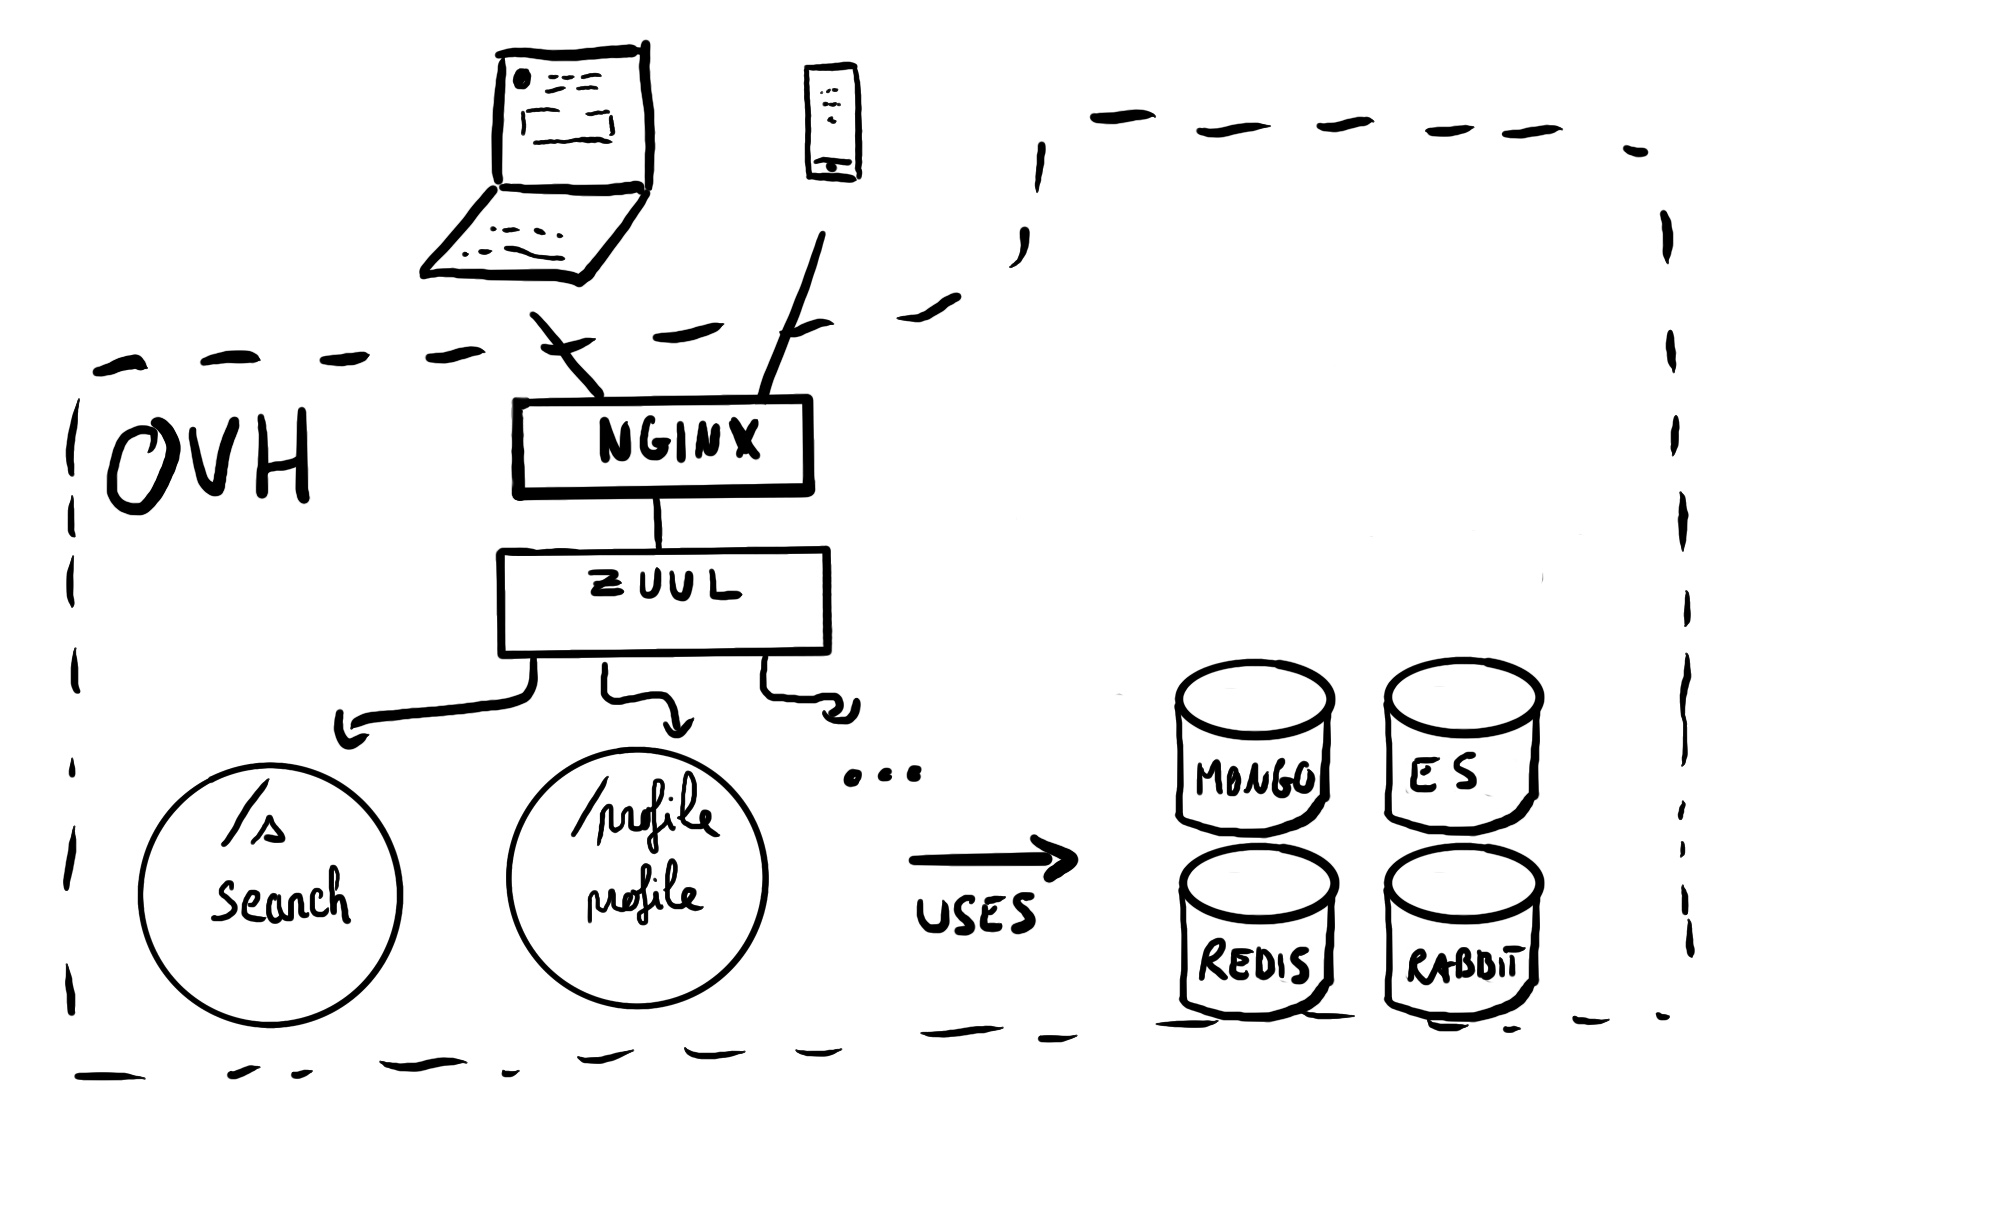 OVH
NGINX
ZUUL
/s
search
/profile
profile
...
USES
MONGO
ES
REDIS
RABBIT